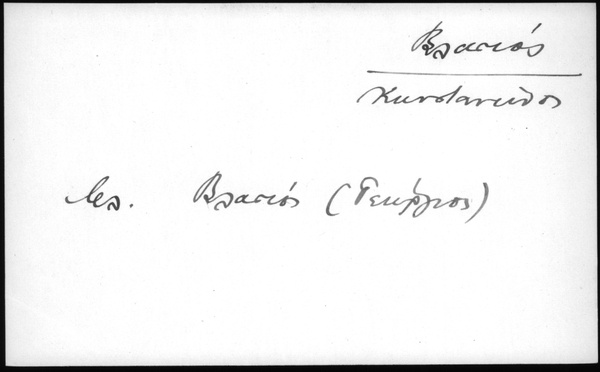 Βλαστός
Κωνσταντῖνος
βλ. Βλαστός (Γεώργιος)